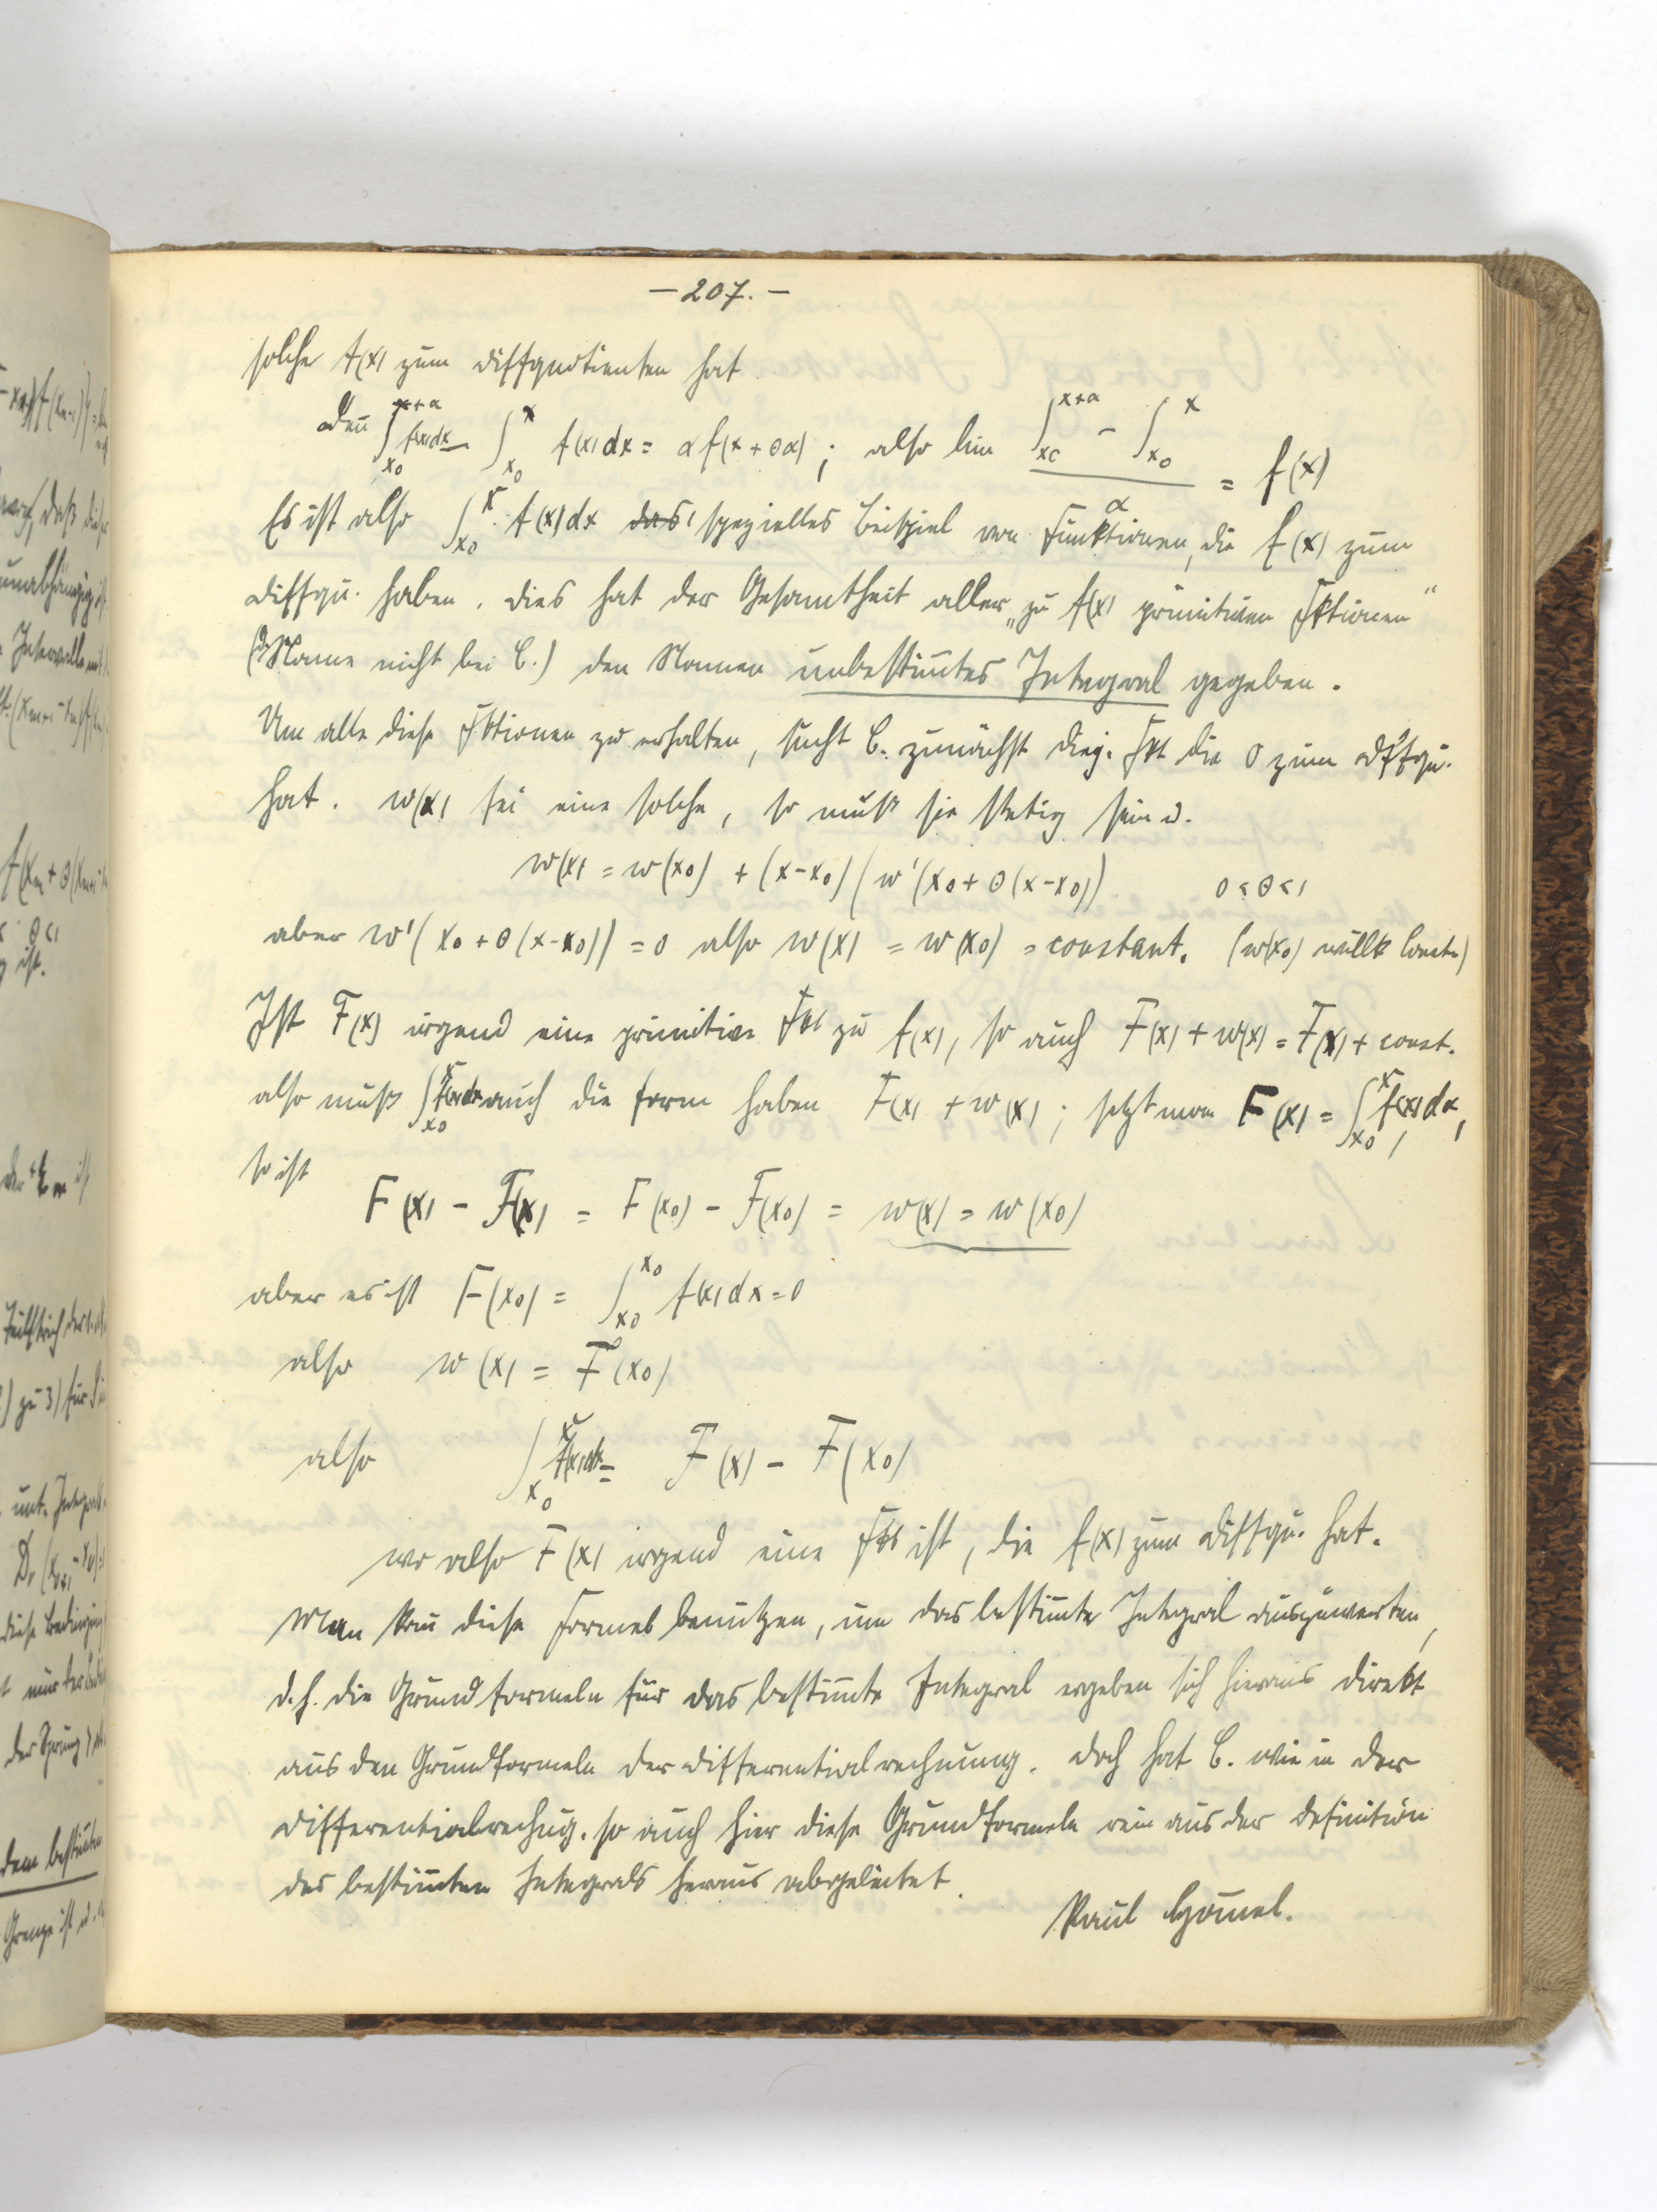 — 207. —
solche f(x) zum Diffquotienten hat.
Denn ∫_{x0}^{x+α} f(x)dx − ∫_{x0}^{x} f(x)dx = α f(x + θα); also lim (∫_{x0}^{x+α} − ∫_{x0}^{x}) / α = f(x)
Es ist also ∫_{x0}^{x} f(x)dx das spezielles Beispiel von Funktionen, die f(x) zum
Diffqu. haben. Dies hat der Gesamtheit aller „zu f(x) primitiven Fktionen“
(Name nicht bei C.) den Namen unbestim̄tes Integral gegeben.
Um alle diese Fktionen zu erhalten, sucht C. zunächst diej. Fkt die 0 zum Diffqu.
hat. w(x) sei eine solche, so muß sie stetig sein u.
w(x) = w(x0) + (x-x0) (w'(x0 + θ(x-x0)) 0<θ<1
aber w'(x0 + θ(x-x0)) = 0 also w(x) = w(x0) = constant. (w(x0) willk Const.)
Ist F(x) irgend eine primitive Fkt zu f(x), so auch F(x) + w(x) = F(x) + const.
also muß ∫_{x0}^{x} f(x)dx auch die Form haben F(x) + w(x); setzt man F(x) = ∫_{x0}^{x} f(x)dx,
so ist
F(x) − F(x) = F(x0) − F(x0) = w(x) = w(x0)
aber es ist F(x0) = ∫_{x0}^{x0} f(x)dx = 0
also w(x) = F(x0)
also ∫_{x0}^{x} f(x)dx = F(x) − F(x0)
wo also F(x) irgend eine Fkt ist, die f(x) zum Diffqu. hat.
Man kan̄ diese Formel benutzen, um das bestim̄te Integral auszuwerten,
d.h. die Grundformeln für das bestim̄te Integral ergeben sich hieraus direkt
aus den Grundformeln der Differentialrechnung. Doch hat C. wie in der
Differentialrechng. so auch hier diese Grundformeln rein aus der Definition
des bestim̄ten Integrals heraus abgeleitet.
Paul